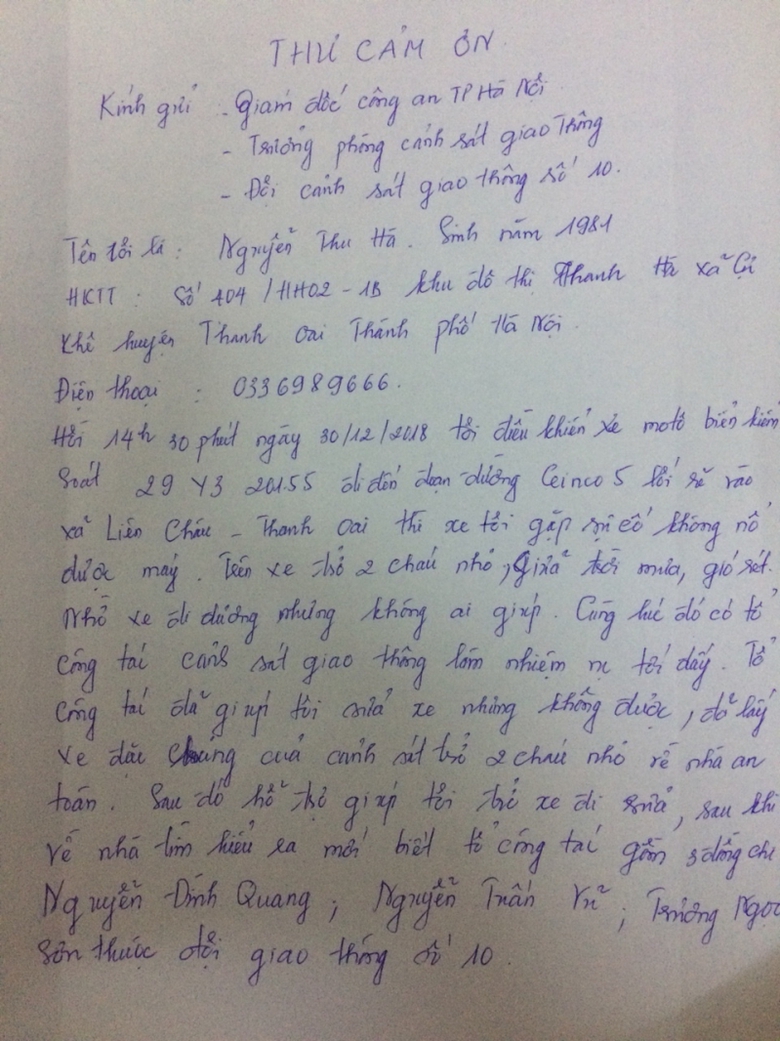 THƯ CẢM ƠN
Kính gửi - Giám đốc công an TP Hà Nội
- Trưởng phòng cảnh sát giao thông
- Đội cảnh sát giao thông số 10.
Tên tôi là : Nguyễn Thu Hà. Sinh năm 1981
HKTT : Số 404 /HH02 - 1B khu đô thị Thanh Hà xã Cự
Khê huyện Thanh Oai Thành phố Hà Nội.
Điện thoại : 0336989666.
Hồi 14h 30 phút ngày 30/12/2018 tôi điều khiển xe moto biển kiểm
Soát 29 Y3 20155 đi đến đoạn đường Ceinco 5 lối rẽ vào
xã Liên Châu - Thanh Oai thì xe tôi gặp sự cố không nổ
được máy. Trên xe trở 2 cháu nhỏ, giữa trời mưa, gió rét.
Nhờ xe đi đường nhưng không ai giúp. Cùng lúc đó có tổ
công tác cảnh sát giao thông làm nhiệm vụ tới đấy. Tổ
công tác đã giúp tôi sửa xe nhưng không được, đã lấy
xe đặc chủng của cảnh sát trở 2 cháu nhỏ về nhà an
toàn. Sau đó hỗ trợ giúp tôi trở xe đi sửa, sau khi
về nhà tìm hiểu ra mới biết tổ công tác gồm 3 đồng chí
Nguyễn Đình Quang ; Nguyễn Tuấn Vũ ; Trương Ngọc
Sơn thuộc đội giao thông số 10.